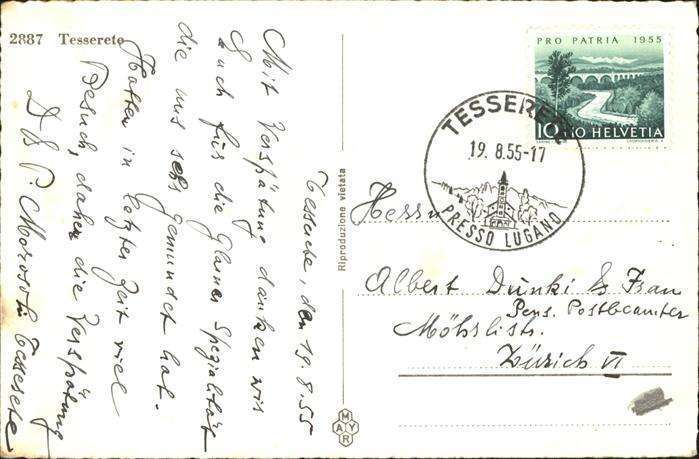 2887 Tesserete
Tesserete, den 19.8.55
Mit Verspätung danken wir
Euch für die Glarner Spezialität
die uns sehr gemundet hat.
Hatten in letzter Zeit viel
Besuch, daher die Verspätung
D & P. Morosoli Tesserete
Riproduzione vietata
MAYR
PRO PATRIA 1955
10+10 HELVETIA
TESSERETE
19.8.55-17
PRESSO LUGANO
Herrn
Albert Dünki & Frau
Pens. Postbeamter
Möhrlistr.
Zürich VI